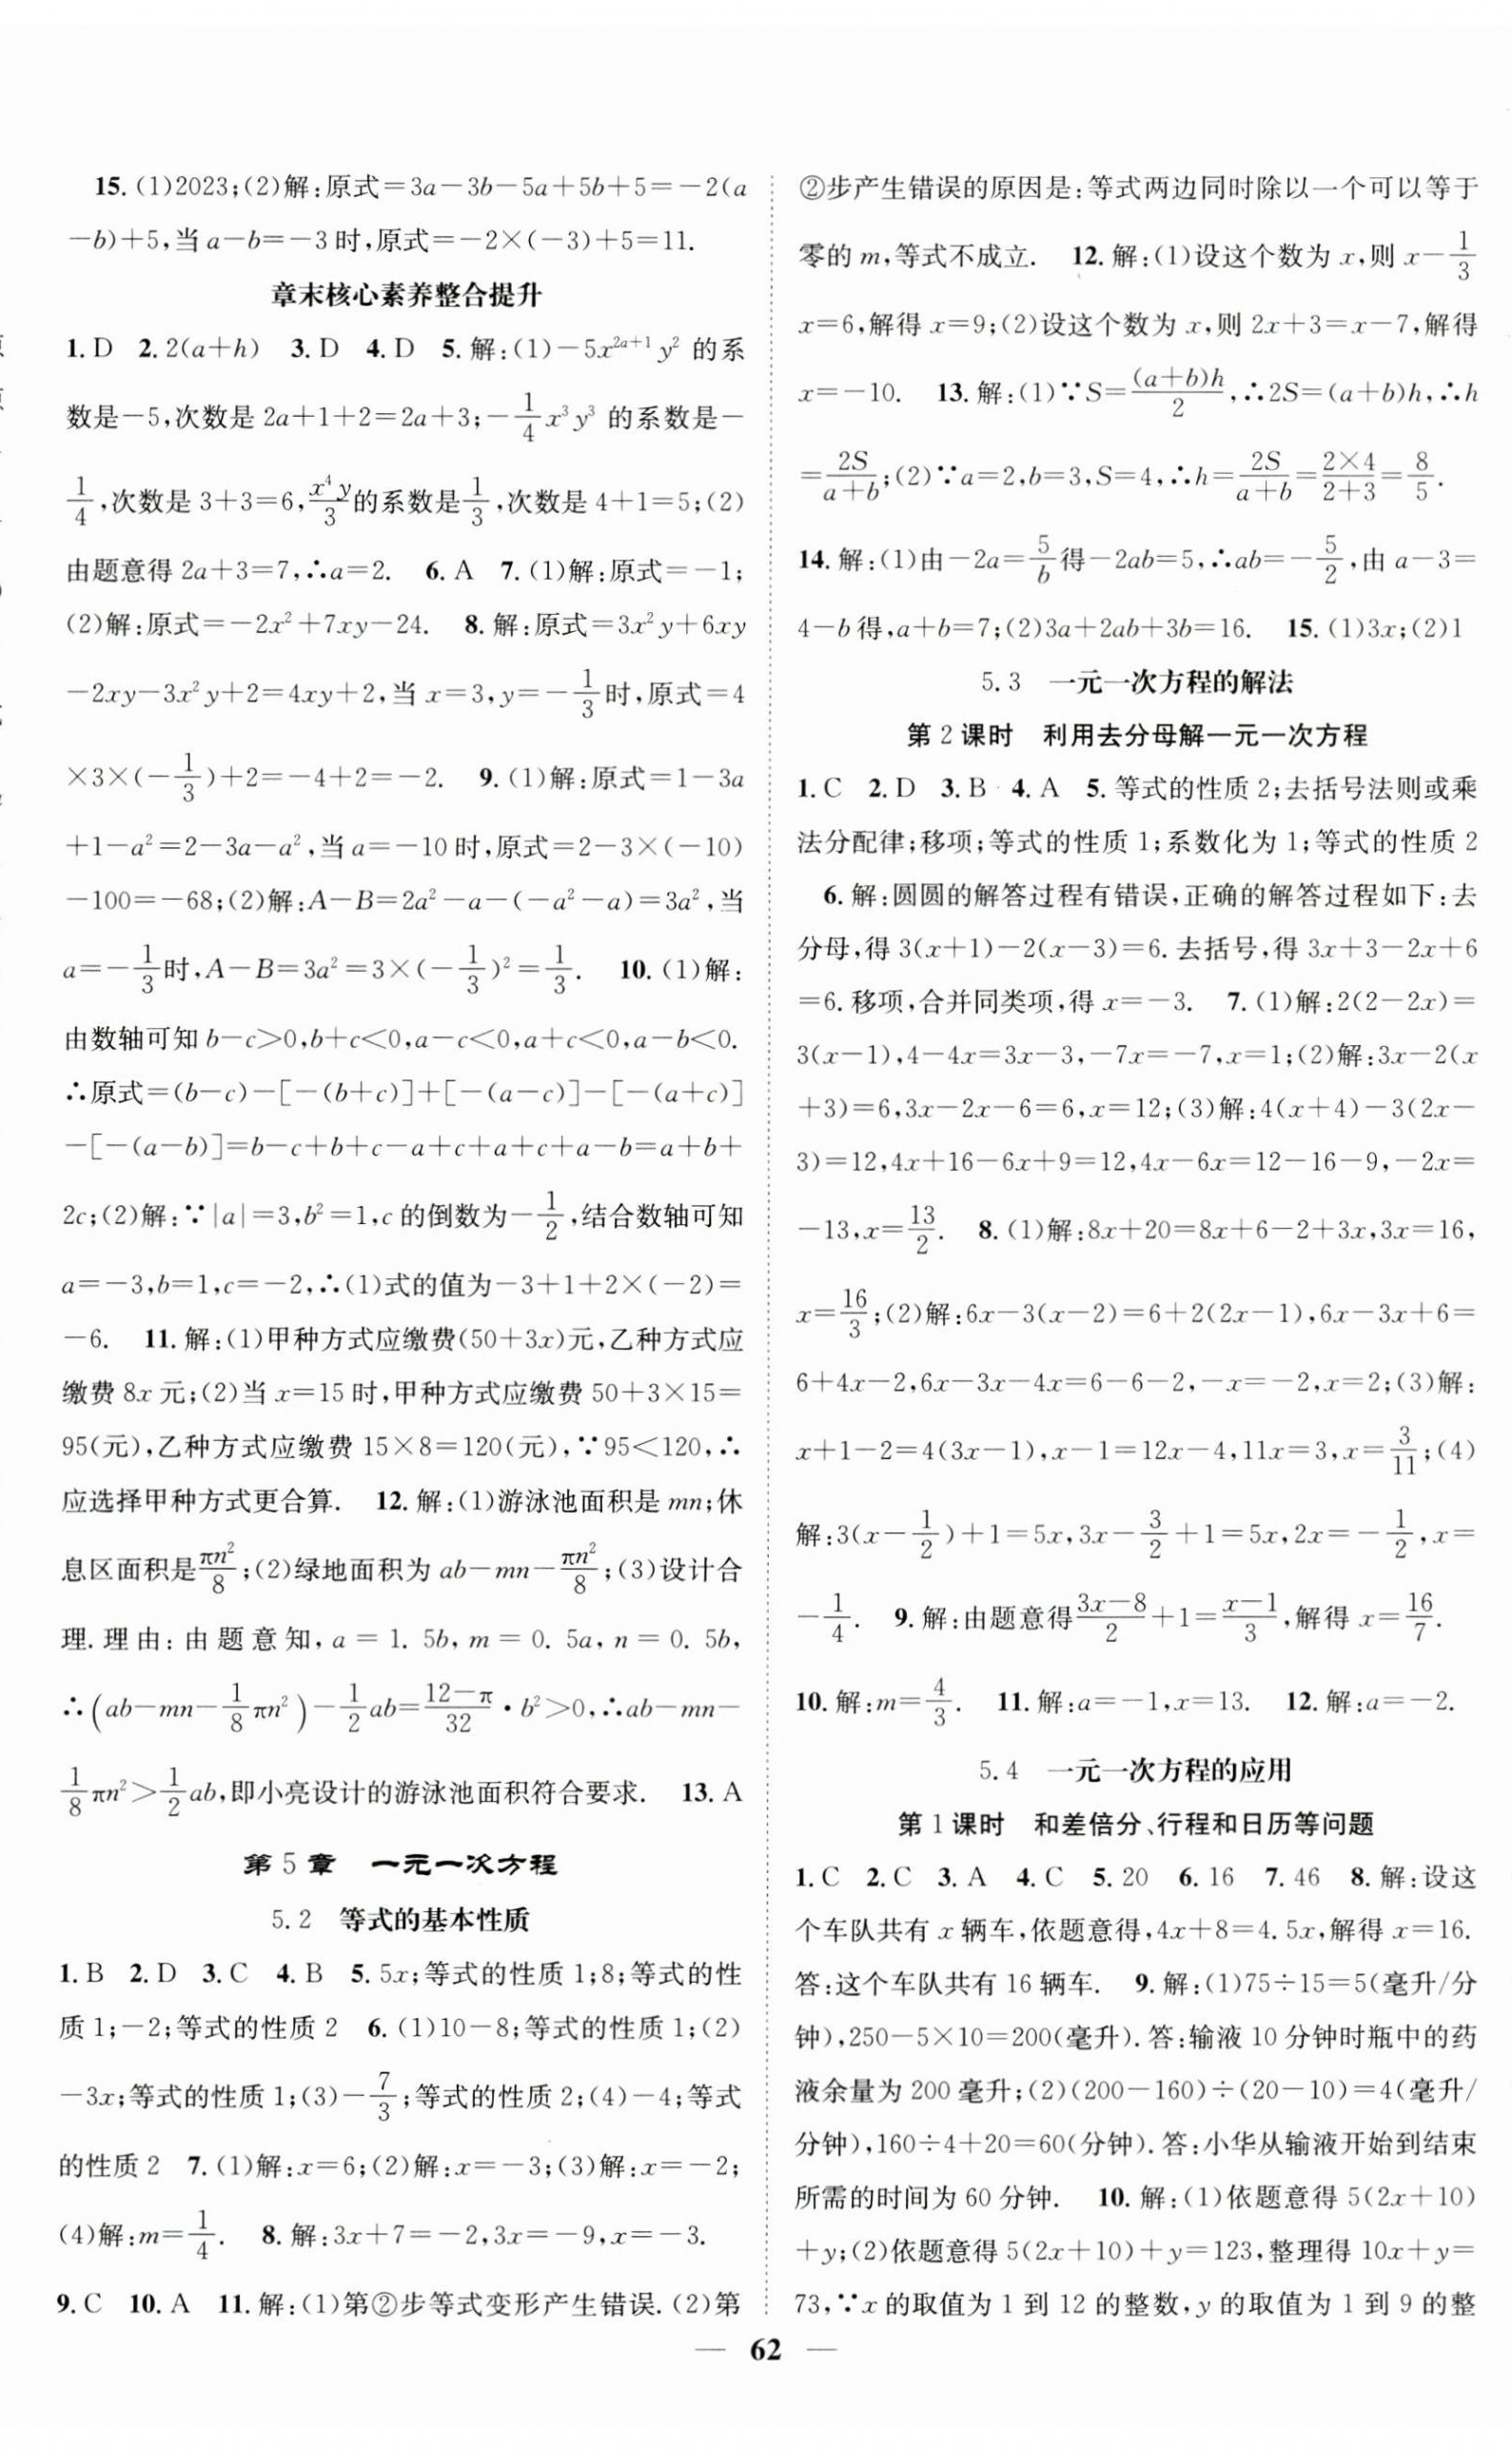 15. (1)2023;(2)解:原式=3a-3b-5a+5b+5=-2(a
-b)+5,当 a-b=-3 时,原式=-2×(-3)+5=11.
章末核心素养整合提升
1. D 2. 2(a+h) 3. D 4. D 5. 解:(1)-5x^{2a+1}y² 的系
数是-5,次数是 2a+1+2=2a+3;-1/4 x³y³ 的系数是-
1/4,次数是 3+3=6,x⁴y/3 的系数是 1/3,次数是 4+1=5;(2)
由题意得 2a+3=7,∴a=2. 6. A 7. (1)解:原式=-1;
(2)解:原式=-2x²+7xy-24. 8. 解:原式=3x²y+6xy
-2xy-3x²y+2=4xy+2,当 x=3,y=-1/3 时,原式=4
×3×(-1/3)+2=-4+2=-2. 9. (1)解:原式=1-3a
+1-a²=2-3a-a²,当 a=-10 时,原式=2-3×(-10)
-100=-68;(2)解:A-B=2a²-a-(-a²-a)=3a²,当
a=-1/3 时,A-B=3a²=3×(-1/3)²=1/3. 10. (1)解:
由数轴可知 b-c>0,b+c<0,a-c<0,a+c<0,a-b<0.
∴原式=(b-c)-[-(b+c)]+[-(a-c)]-[-(a+c)]
-[-(a-b)]=b-c+b+c-a+c+a+c+a-b=a+b+
2c;(2)解:∵|a|=3,b²=1,c 的倒数为-1/2,结合数轴可知
a=-3,b=1,c=-2,∴(1)式的值为-3+1+2×(-2)=
-6. 11. 解:(1)甲种方式应缴费(50+3x)元,乙种方式应
缴费 8x 元;(2)当 x=15 时,甲种方式应缴费 50+3×15=
95(元),乙种方式应缴费 15×8=120(元),∵95<120,∴
应选择甲种方式更合算. 12. 解:(1)游泳池面积是 mn;休
息区面积是 πn²/8;(2)绿地面积为 ab-mn-πn²/8;(3)设计合
理. 理由:由题意知,a=1. 5b,m=0. 5a,n=0. 5b,
∴(ab-mn-1/8 πn²)-1/2 ab=(12-π)/32 · b²>0,∴ab-mn-
1/8 πn²>1/2 ab,即小亮设计的游泳池面积符合要求. 13. A
第 5 章 一元一次方程
5.2 等式的基本性质
1. B 2. D 3. C 4. B 5. 5x;等式的性质 1;8;等式的性
质 1;-2;等式的性质 2 6. (1)10-8;等式的性质 1;(2)
-3x;等式的性质 1;(3)-7/3;等式的性质 2;(4)-4;等式
的性质 2 7. (1)解:x=6;(2)解:x=-3;(3)解:x=-2;
(4)解:m=1/4. 8. 解:3x+7=-2,3x=-9,x=-3.
9. C 10. A 11. 解:(1)第②步等式变形产生错误. (2)第
②步产生错误的原因是:等式两边同时除以一个可以等于
零的 m,等式不成立. 12. 解:(1)设这个数为 x,则 x-1/3
x=6,解得 x=9;(2)设这个数为 x,则 2x+3=x-7,解得
x=-10. 13. 解:(1)∵S=(a+b)h/2,∴2S=(a+b)h,∴h
=2S/(a+b);(2)∵a=2,b=3,S=4,∴h=2S/(a+b)=(2×4)/(2+3)=8/5.
14. 解:(1)由-2a=5/b 得-2ab=5,∴ab=-5/2,由 a-3=
4-b 得,a+b=7;(2)3a+2ab+3b=16. 15. (1)3x;(2)1
5.3 一元一次方程的解法
第 2 课时 利用去分母解一元一次方程
1. C 2. D 3. B 4. A 5. 等式的性质 2;去括号法则或乘
法分配律;移项;等式的性质 1;系数化为 1;等式的性质 2
6. 解:圆圆的解答过程有错误,正确的解答过程如下:去
分母,得 3(x+1)-2(x-3)=6. 去括号,得 3x+3-2x+6
=6. 移项,合并同类项,得 x=-3. 7. (1)解:2(2-2x)=
3(x-1),4-4x=3x-3,-7x=-7,x=1;(2)解:3x-2(x
+3)=6,3x-2x-6=6,x=12;(3)解:4(x+4)-3(2x-
3)=12,4x+16-6x+9=12,4x-6x=12-16-9,-2x=
-13,x=13/2. 8. (1)解:8x+20=8x+6-2+3x,3x=16,
x=16/3;(2)解:6x-3(x-2)=6+2(2x-1),6x-3x+6=
6+4x-2,6x-3x-4x=6-6-2,-x=-2,x=2;(3)解:
x+1-2=4(3x-1),x-1=12x-4,11x=3,x=3/11;(4)
解:3(x-1/2)+1=5x,3x-3/2+1=5x,2x=-1/2,x=
-1/4. 9. 解:由题意得(3x-8)/2+1=(x-1)/3,解得 x=16/7.
10. 解:m=4/3. 11. 解:a=-1,x=13. 12. 解:a=-2.
5.4 一元一次方程的应用
第 1 课时 和差倍分、行程和日历等问题
1. C 2. C 3. A 4. C 5. 20 6. 16 7. 46 8. 解:设这
个车队共有 x 辆车,依题意得,4x+8=4. 5x,解得 x=16.
答:这个车队共有 16 辆车. 9. 解:(1)75÷15=5(毫升/分
钟),250-5×10=200(毫升). 答:输液 10 分钟时瓶中的药
液余量为 200 毫升;(2)(200-160)÷(20-10)=4(毫升/
分钟),160÷4+20=60(分钟). 答:小华从输液开始到结束
所需的时间为 60 分钟. 10. 解:(1)依题意得 5(2x+10)
+y;(2)依题意得 5(2x+10)+y=123,整理得 10x+y=
73,∵x 的取值为 1 到 12 的整数,y 的取值为 1 到 9 的整
— 62 —